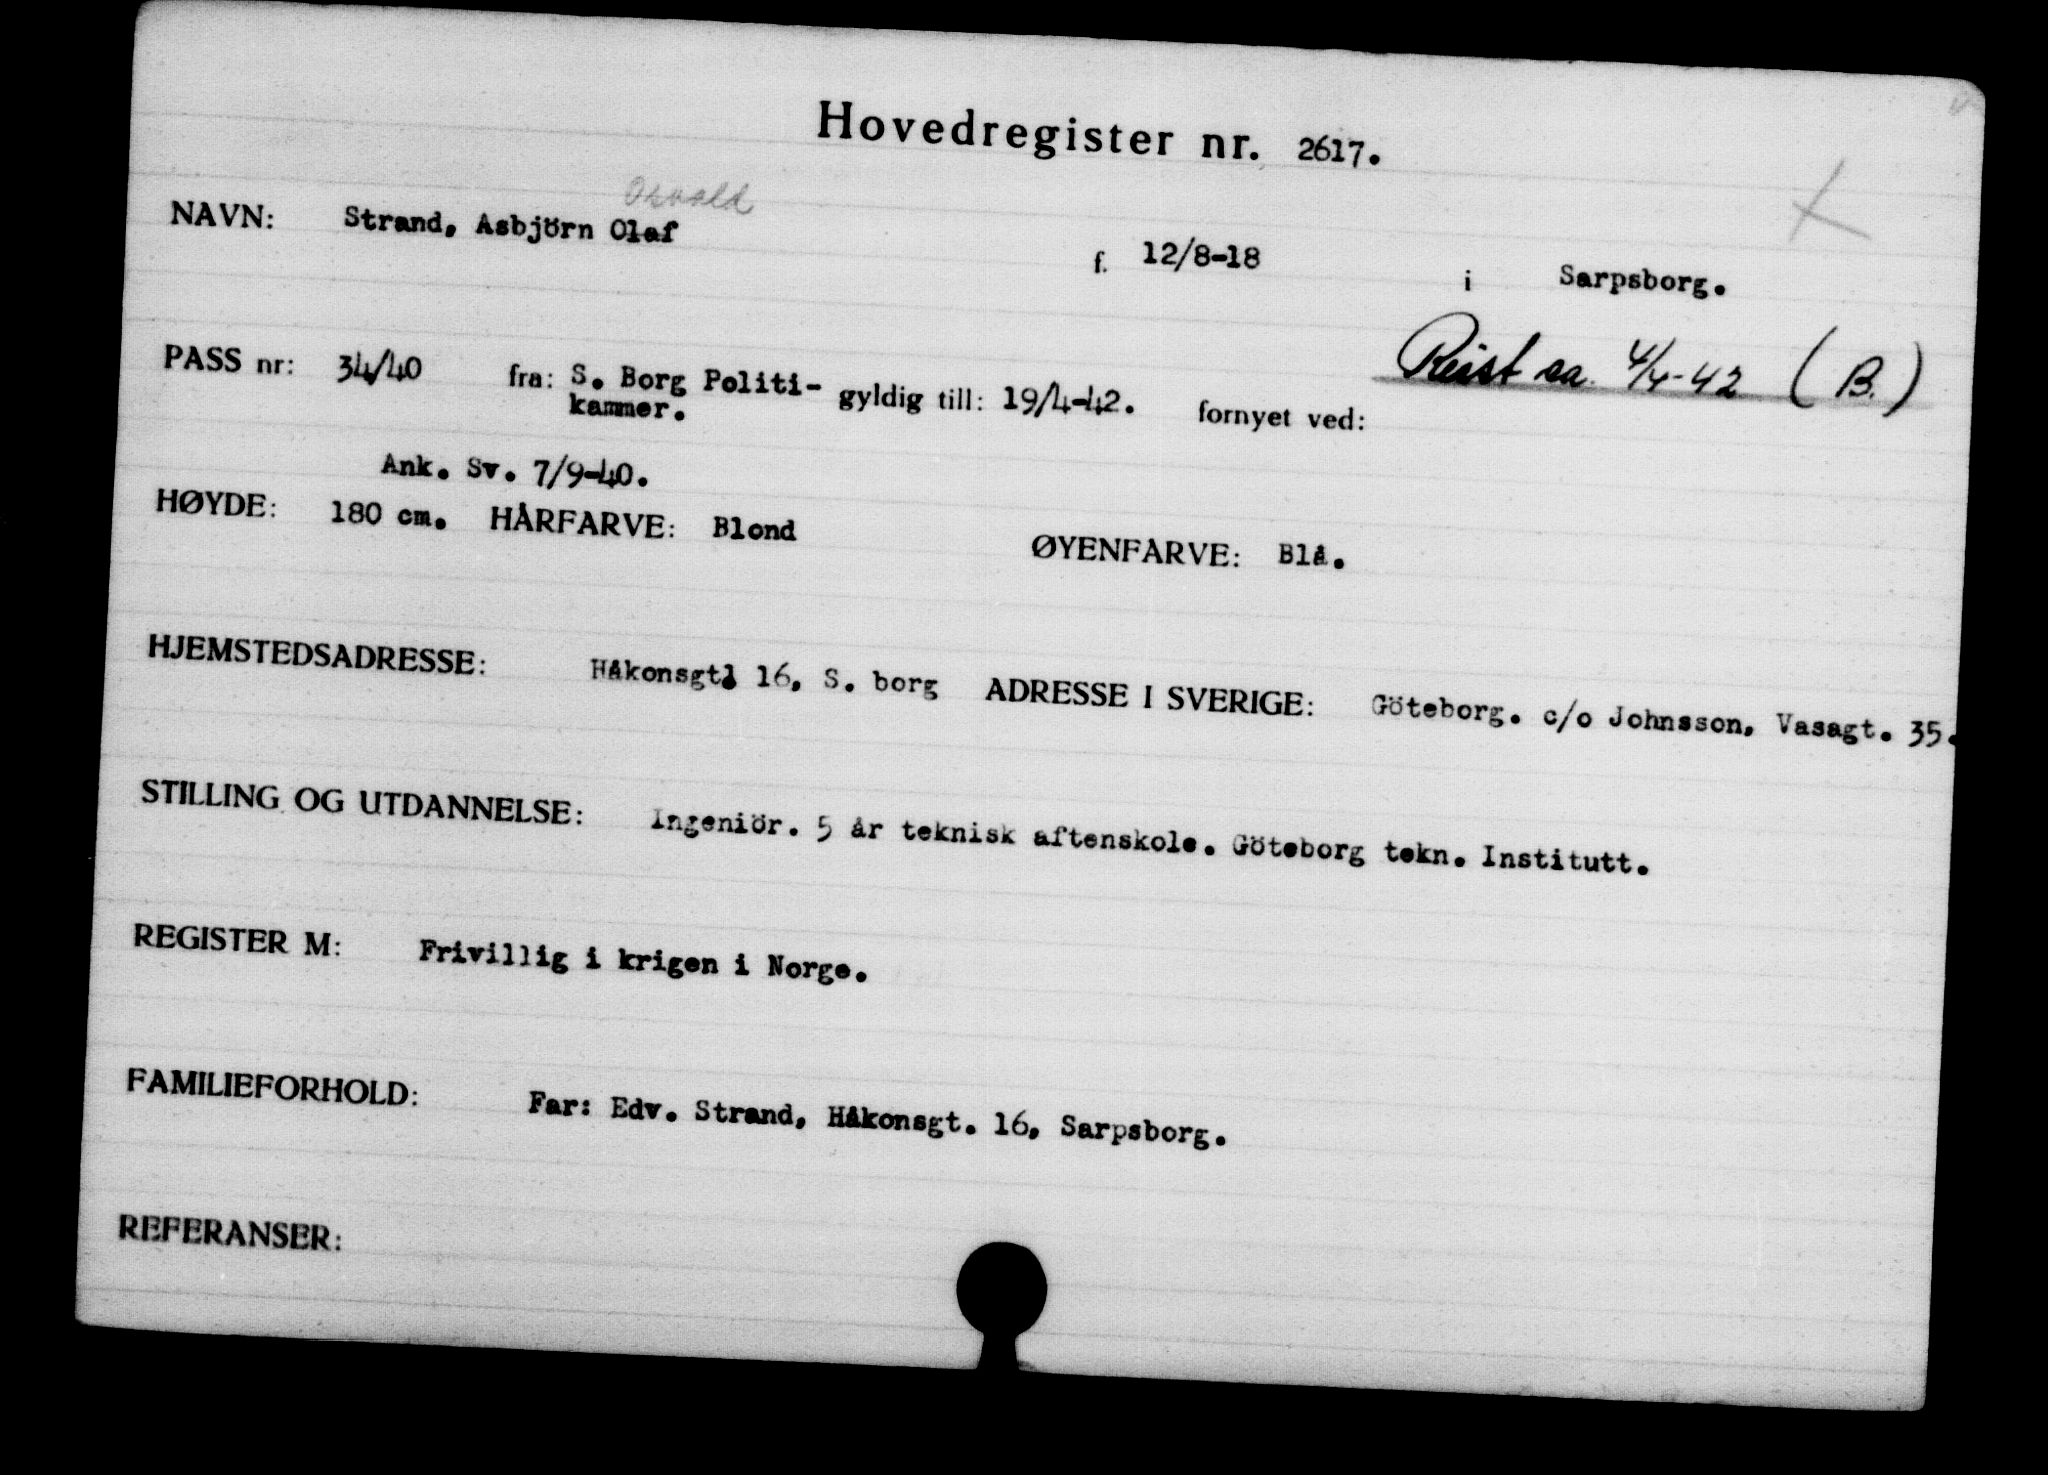 Hovedregister nr. 2617.
Osvald
NAVN: Strand, Asbjörn Olaf f. 12/8-18 i Sarpsborg.
Reist ca. 4/4-42 (B.)
PASS nr: 34/40 fra: S. Borg Politi- gyldig till: 19/4-42. fornyet ved:
kammer.
Ank. Sv. 7/9-40.
HØYDE: 180 cm. HÅRFARVE: Blond ØYENFARVE: Blå.
HJEMSTEDSADRESSE: Håkonsgt. 16, S. borg ADRESSE I SVERIGE: Göteborg. c/o Johnsson, Vasagt. 35.
STILLING OG UTDANNELSE: Ingeniör. 5 år teknisk aftenskole. Göteborg tekn. Institutt.
REGISTER M: Frivillig i krigen i Norge.
FAMILIEFORHOLD: Far: Edv. Strand, Håkonsgt. 16, Sarpsborg.
REFERANSER: